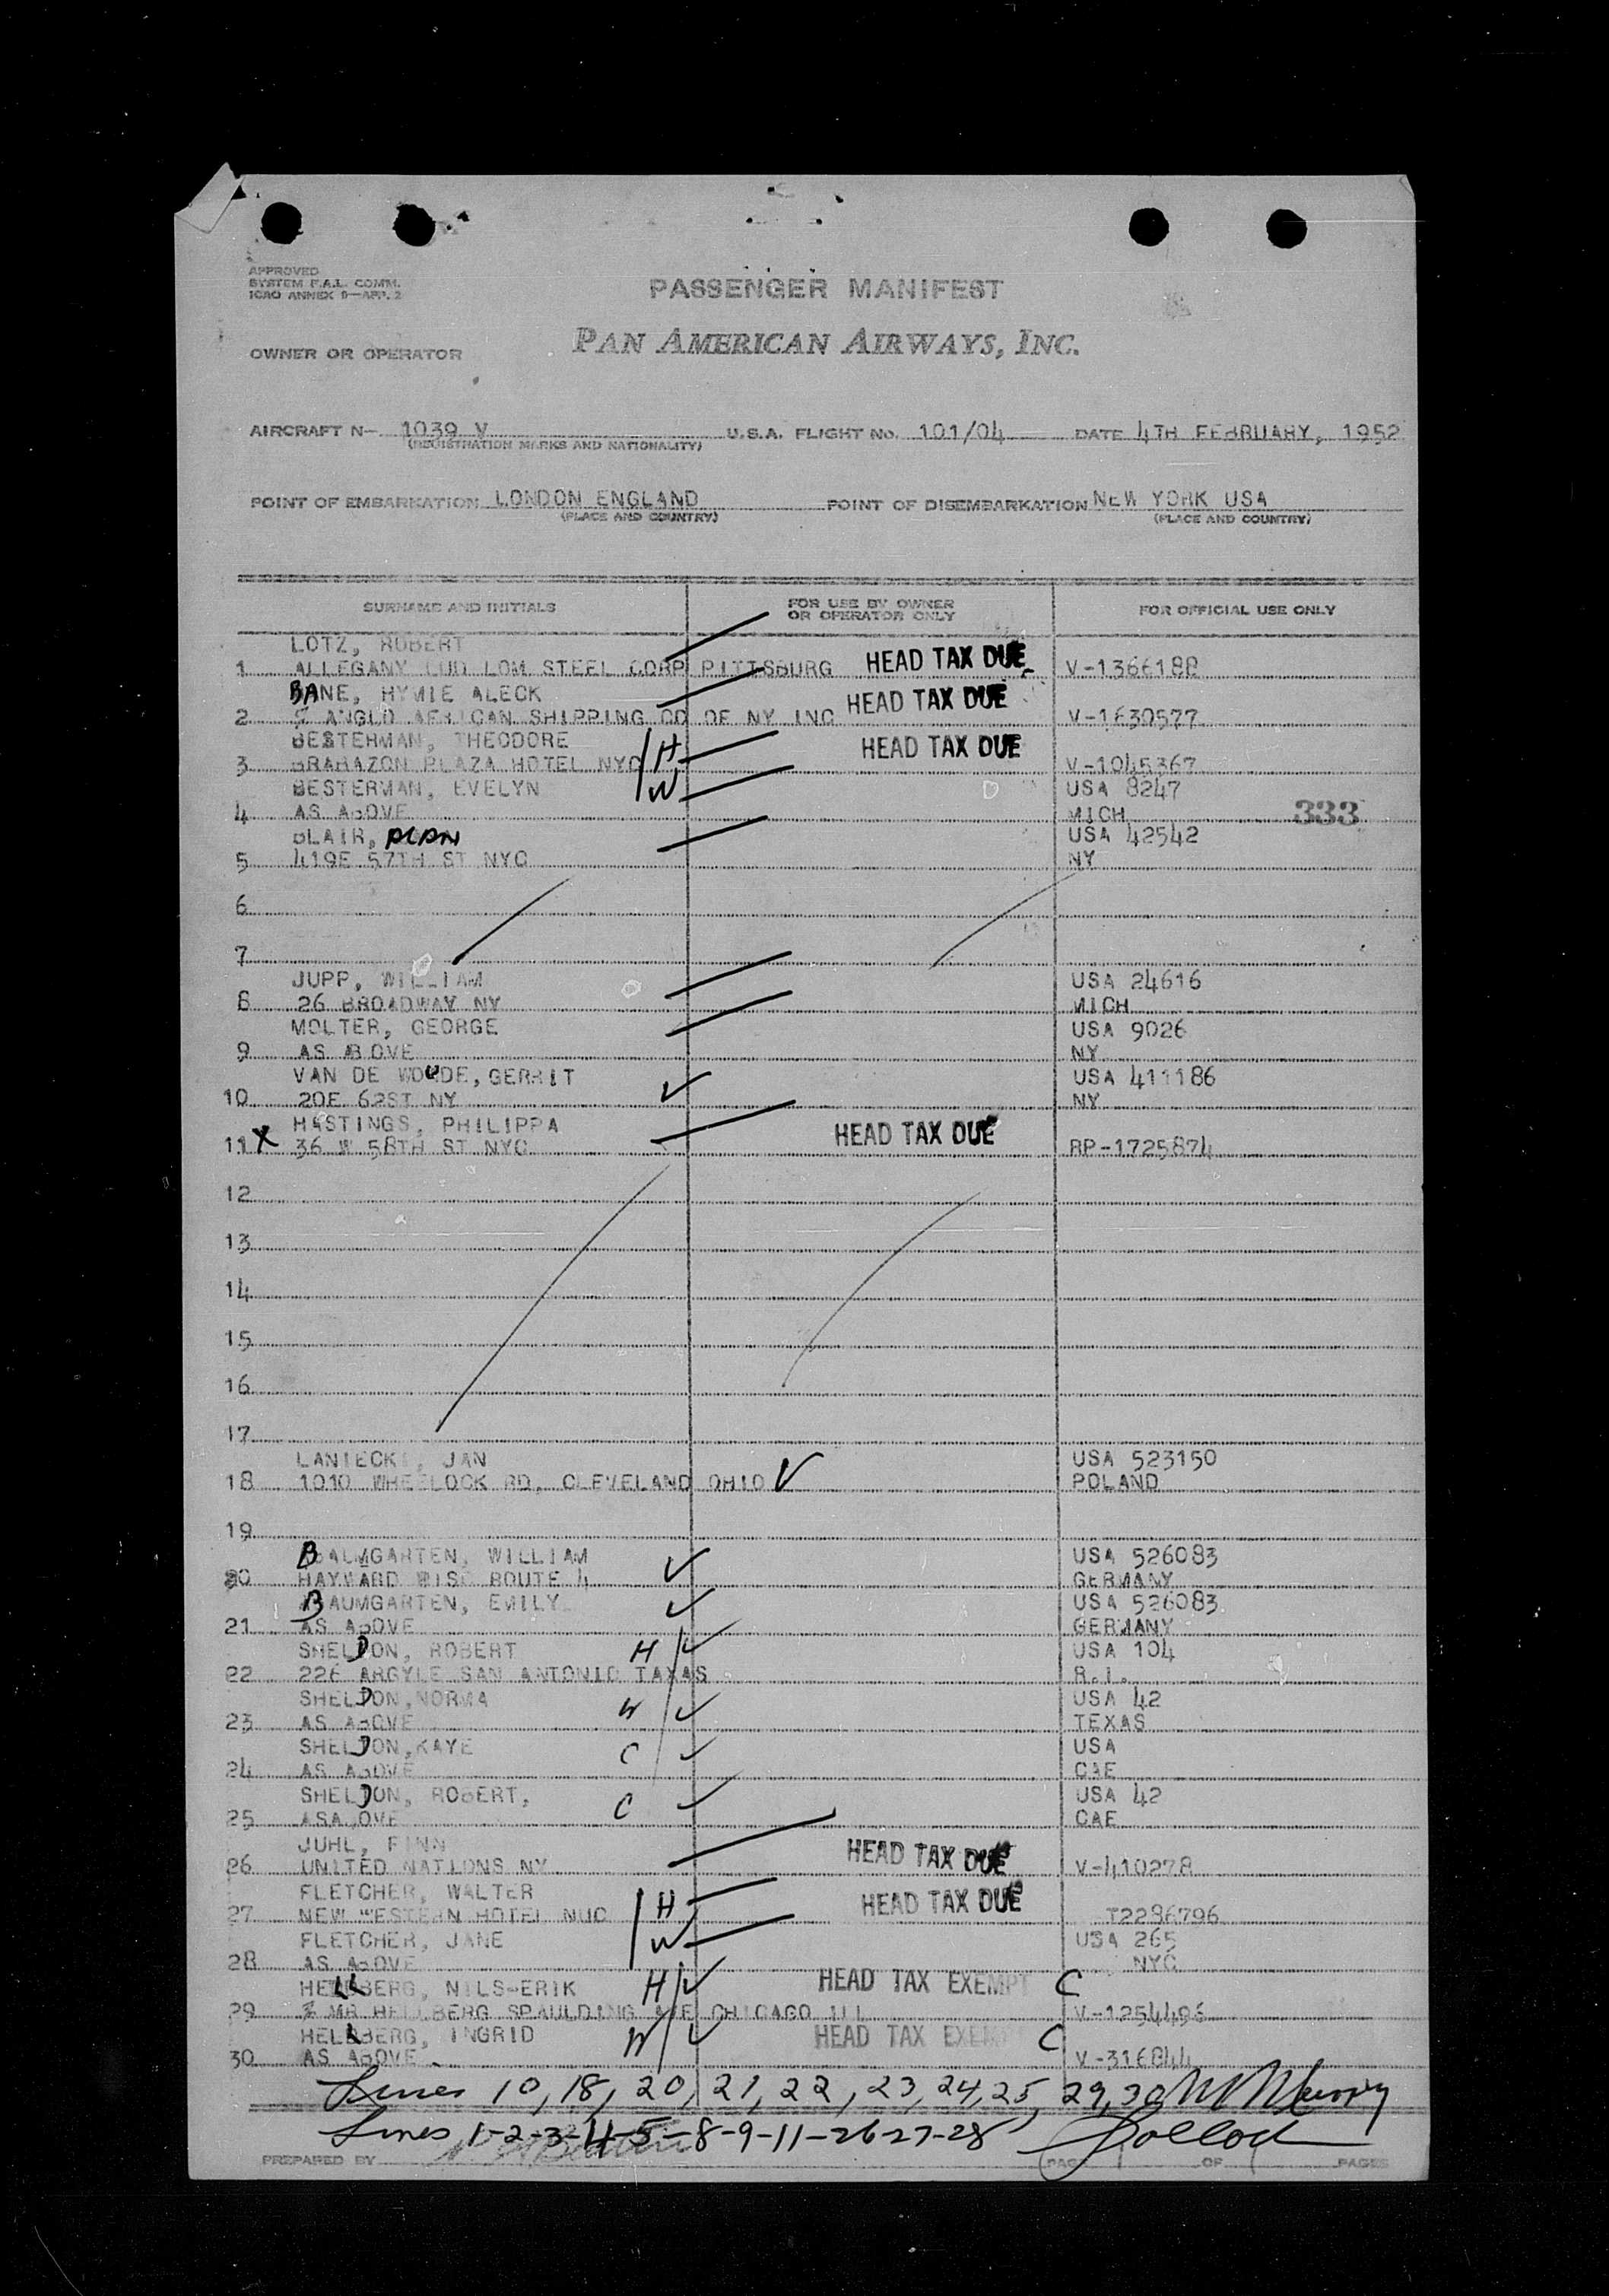 APPROVED
SYSTEM F.A.L. COMM.
ICAO ANNEX 9—APP. 2
PASSENGER MANIFEST
OWNER OR OPERATOR PAN AMERICAN AIRWAYS, INC.
AIRCRAFT N— 1039 V U.S.A. FLIGHT No. 101/04 DATE 4TH FEBRUARY, 1952
(REGISTRATION MARKS AND NATIONALITY)
POINT OF EMBARKATION LONDON ENGLAND POINT OF DISEMBARKATION NEW YORK USA
(PLACE AND COUNTRY) (PLACE AND COUNTRY)
SURNAME AND INITIALS FOR USE BY OWNER OR OPERATOR ONLY FOR OFFICIAL USE ONLY
LOTZ, ROBERT
1 ALLEGANY LUD LOM STEEL CORP PITTSBURG HEAD TAX DUE V-1366188
BANE, HYMIE ALECK HEAD TAX DUE
2 % ANGLO AFRICAN SHIPPING CO OF NY INC V-1630577
BESTERMAN, THEODORE H HEAD TAX DUE
3 BRABAZON PLAZA HOTEL NYC V-1045367
BESTERMAN, EVELYN W USA 8247
4 AS ABOVE MICH 333
BLAIR, ALAN USA 42542
5 419E 57TH ST NYC NY
6
7
JUPP, WILLIAM USA 24616
8 26 BROADWAY NY MICH
MOLTER, GEORGE USA 9026
9 AS ABOVE NY
VAN DE WOUDE, GERRIT USA 411186
10 20E 62ST NY NY
HASTINGS, PHILIPPA HEAD TAX DUE
11 X 36 W 58TH ST NYC RP-1725874
12
13
14
15
16
17
LANIECKI, JAN USA 523150
18 1010 WHEELOCK RD, CLEVELAND OHIO POLAND
19
BAUMGARTEN, WILLIAM USA 526083
20 HAYWARD WISC ROUTE 4 GERMANY
BAUMGARTEN, EMILY USA 526083
21 AS ABOVE GERMANY
SHELDON, ROBERT H USA 104
22 226 ARGYLE SAN ANTONIO TAXAS R.I.
SHELDON,NORMA W USA 42
23 AS ABOVE TEXAS
SHELDON,KAYE C USA
24 AS ABOVE CAE
SHELDON, ROBERT, C USA 42
25 ASABOVE CAE
JUHL, FINN HEAD TAX DUE
26 UNITED NATIONS NY V-410278
FLETCHER, WALTER H HEAD TAX DUE
27 NEW WESTERN HOTEL NUC T2286796
FLETCHER, JANE W USA 265
28 AS ABOVE NYC
HELLBERG, NILS-ERIK H HEAD TAX EXEMPT C
29 % MR HELLBERG SPAULDING AVE CHICAGO ILL V-1254496
HELLBERG, INGRID W HEAD TAX EXEMPT C
30 AS ABOVE V-316844
Lines 10, 18, 20, 21, 22, 23, 24, 25, 29, 30
Lines 1-2-3-4-5-8-9-11-26-27-28 Pollock
PREPARED BY PAGE OF PAGES